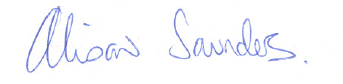 Alison Saunders.